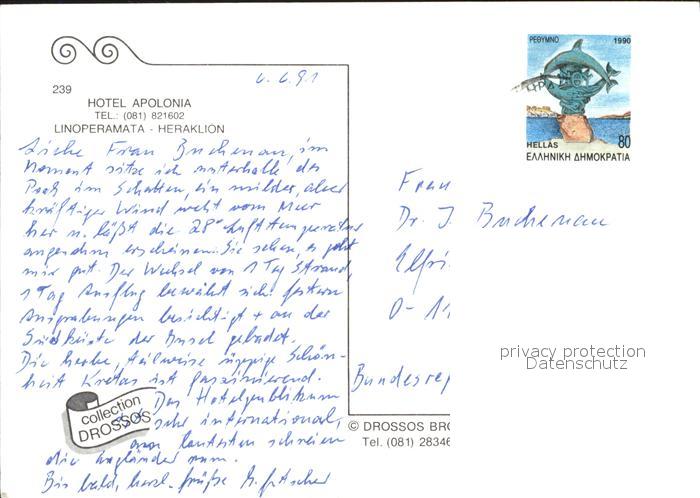 239
HOTEL APOLONIA
TEL.: (081) 821602
LINOPERAMATA - HERAKLION
6.6.91
Liebe Frau Buchenau, im
Moment sitze ich unterhalb des
Pools im Schatten, ein milder, aber
kräftiger Wind weht vom Meer
her u. läßt die 28° Lufttemperatur
angenehm erscheinen. Sie sehen, es geht
mir gut. Der Wechsel von 1 Tag Strand,
1 Tag Ausflug bewährt sich: gestern
Ausgrabungen besichtigt + an der
Südküste der Insel gebadet.
Die herbe, teilweise üppige Schön-
heit Kretas ist faszinierend.
Das Hotelpublikum
ist sehr international,
am lautesten schreien
die Engländer rum.
Bis bald, herzl. Grüße
collection
DROSSOS
ΡΕΘΥΜΝΟ 1990
HELLAS 80
ΕΛΛΗΝΙΚΗ ΔΗΜΟΚΡΑΤΙΑ
Frau
Dr. I. Buchenau
Elfri
O-11
Bundesrep
privacy protection
Datenschutz
© DROSSOS BRO
Tel. (081) 28346